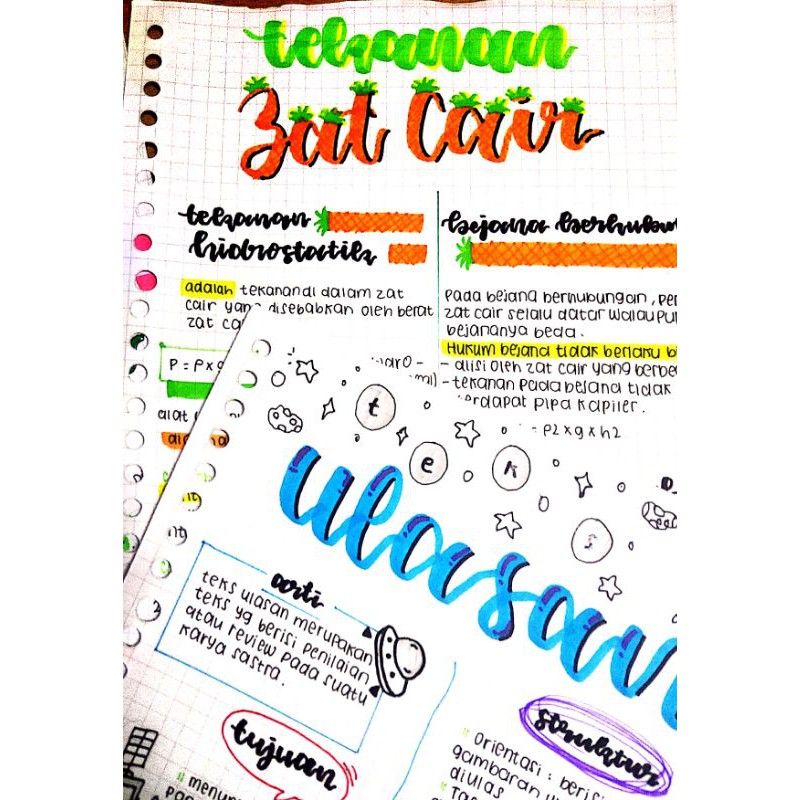 tekanan
Zat Cair
tekanan
hidrostatik
adalah tekanan di dalam zat
cair yang disebabkan oleh berat
zat ca
P = ρ x g
alat
bejana berhubun
pada bejana berhubungan, per
zat cair selalu datar walaupun
bejananya beda.
Hukum bejana tidak berlaku b
- diisi oleh zat cair yang berbe
- tekanan pada bejana tidak
erdapat pipa kapiler.
= ρ2 x g x h2
t e k s
ulasan
arti
teks ulasan merupakan
teks yg berisi penilaian
atau review pada suatu
karya sastra.
tujuan
struktur
orientasi : beris
gambaran u
diulas